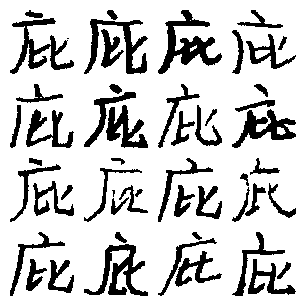 庇庇庇庇
庇庇庇庇
庇庇庇庇
庇庇庇庇